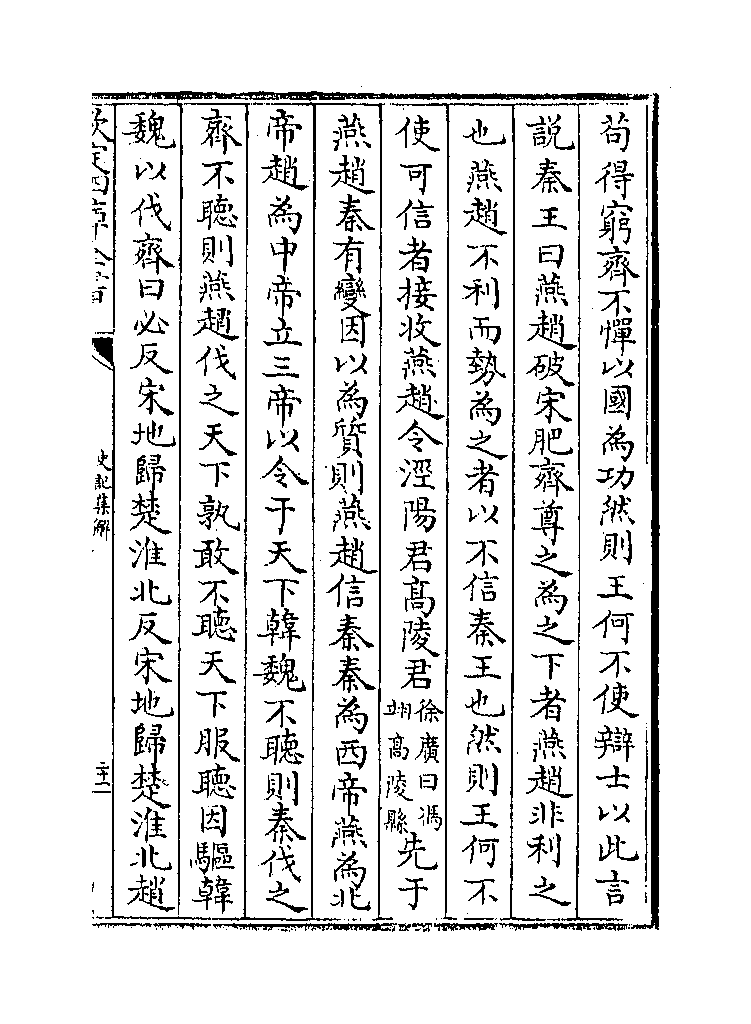 苟得窮齊不憚以國為功然則王何不使辯士以此言
說秦王曰燕趙破宋肥齊尊之為之下者燕趙非利之
也燕趙不利而勢為之者以不信秦王也然則王何不
使可信者接收燕趙令涇陽君髙陵君徐廣曰馮翊髙陵縣先于
燕趙秦有變因以為質則燕趙信秦秦為西帝燕為北
帝趙為中帝立三帝以令于天下韓魏不聽則秦伐之
齊不聽則燕趙伐之天下孰敢不聽天下服聽因驅韓
魏以伐齊曰必反宋地歸楚淮北反宋地歸楚淮北趙
欽定四庫全書
史記集解